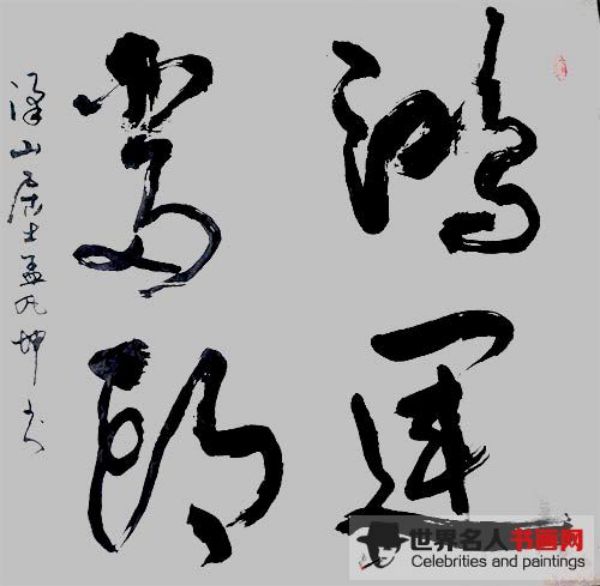 鴻運
當頭
梁山居士孟凡坤书
世界名人书画网
Celebrities and paintings